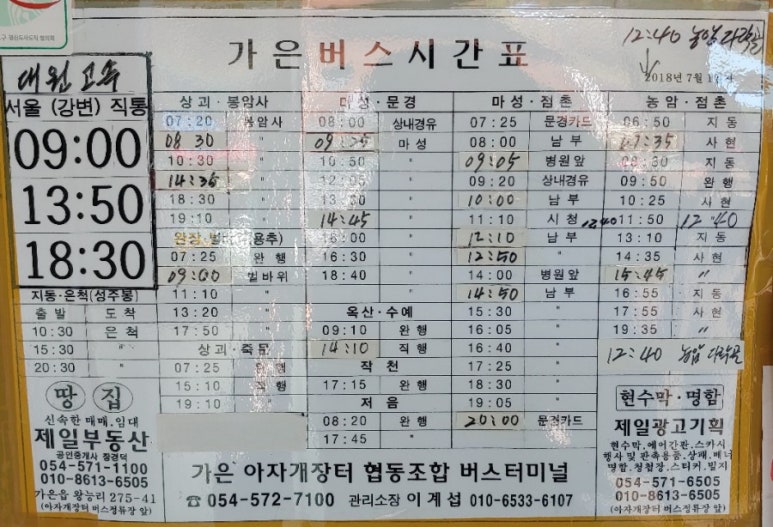 가은버스시간표
12:40 농암 다락골
2018년 7월
대원고속
서울 (강변) 직통
09:00
13:50
18:30
지동·은척(성주봉)
출발 도착
10:30 은척
15:30 "
20:30 "
상괴·봉암사
07:20 봉암사
08 30 "
10:30 "
14:35 "
18:30 "
19:10 "
완장
07:25 완행
09:00 벌바위
11:10 "
13:20 "
17:50 "
상괴·죽문
07:25
15:10 행
19:10 "
마성·문경
08:00 상내경유
마성
10:50 "
12:05 "
"
14:45 "
16:00 "
16:30 "
18:40 "
옥산·수예
09:10 완행
14:10 직행
작천
17:15 완행
저음
08:20 완행
17:45 "
마성·점촌
07:25 문경카드
08:00 남부
09:05 병원앞
09:20 상내경유
10:00 남부
11:10 시청
12:10 남부
12:50 "
14:00 병원앞
14:50 남부
15:30 "
16:05 "
16:40 "
17:25 "
18:30 "
19:05 "
20:00 문경카드
농암·점촌
06:50 지동
07:35 사현
08:30 지동
09:50 완행
10:25 사현
12:40 11:50 12:40
13:10 지동
14:35 사현
15:45 "
16:55 지동
17:55 사현
19:35 "
12:40 농암 다락골
땅집
신속한 매매.임대
제일부동산
공인중개사 장경덕
054-571-1100
010-8613-6505
가은읍 왕능리 275-41
(아자개장터 버스정류장 앞)
가은 아자개장터 협동조합 버스터미널
☎054-572-7100 관리소장 이계섭 010-6533-6107
현수막·명함
제일광고기획
현수막.에어간판.스카시
행사 및 판촉용품.상패.배너
명함.청첩장.스티커.빌지
054-571-6505
010-8613-6505
(아자개장터버스정류장 앞)